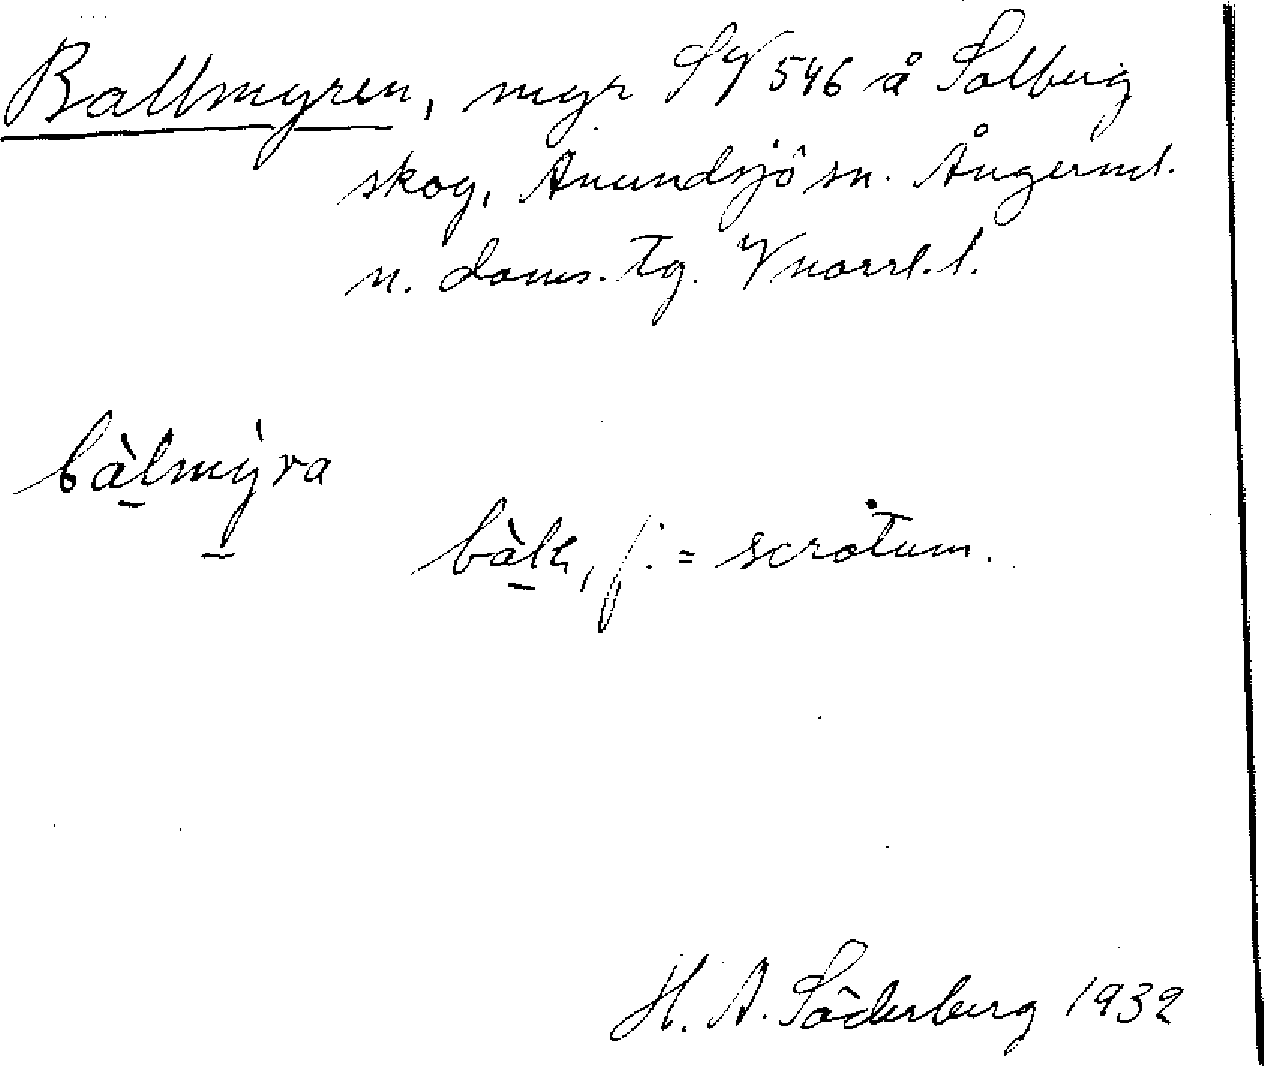 Ballmyren, myr SV 546 å Solberg
skog, Anundsjö sn. Ångerml.
n. doms. tg. Vnorrl. l.
bàlmỳra
bàlh, f. = scrotum.
H. A. Söderberg 1932